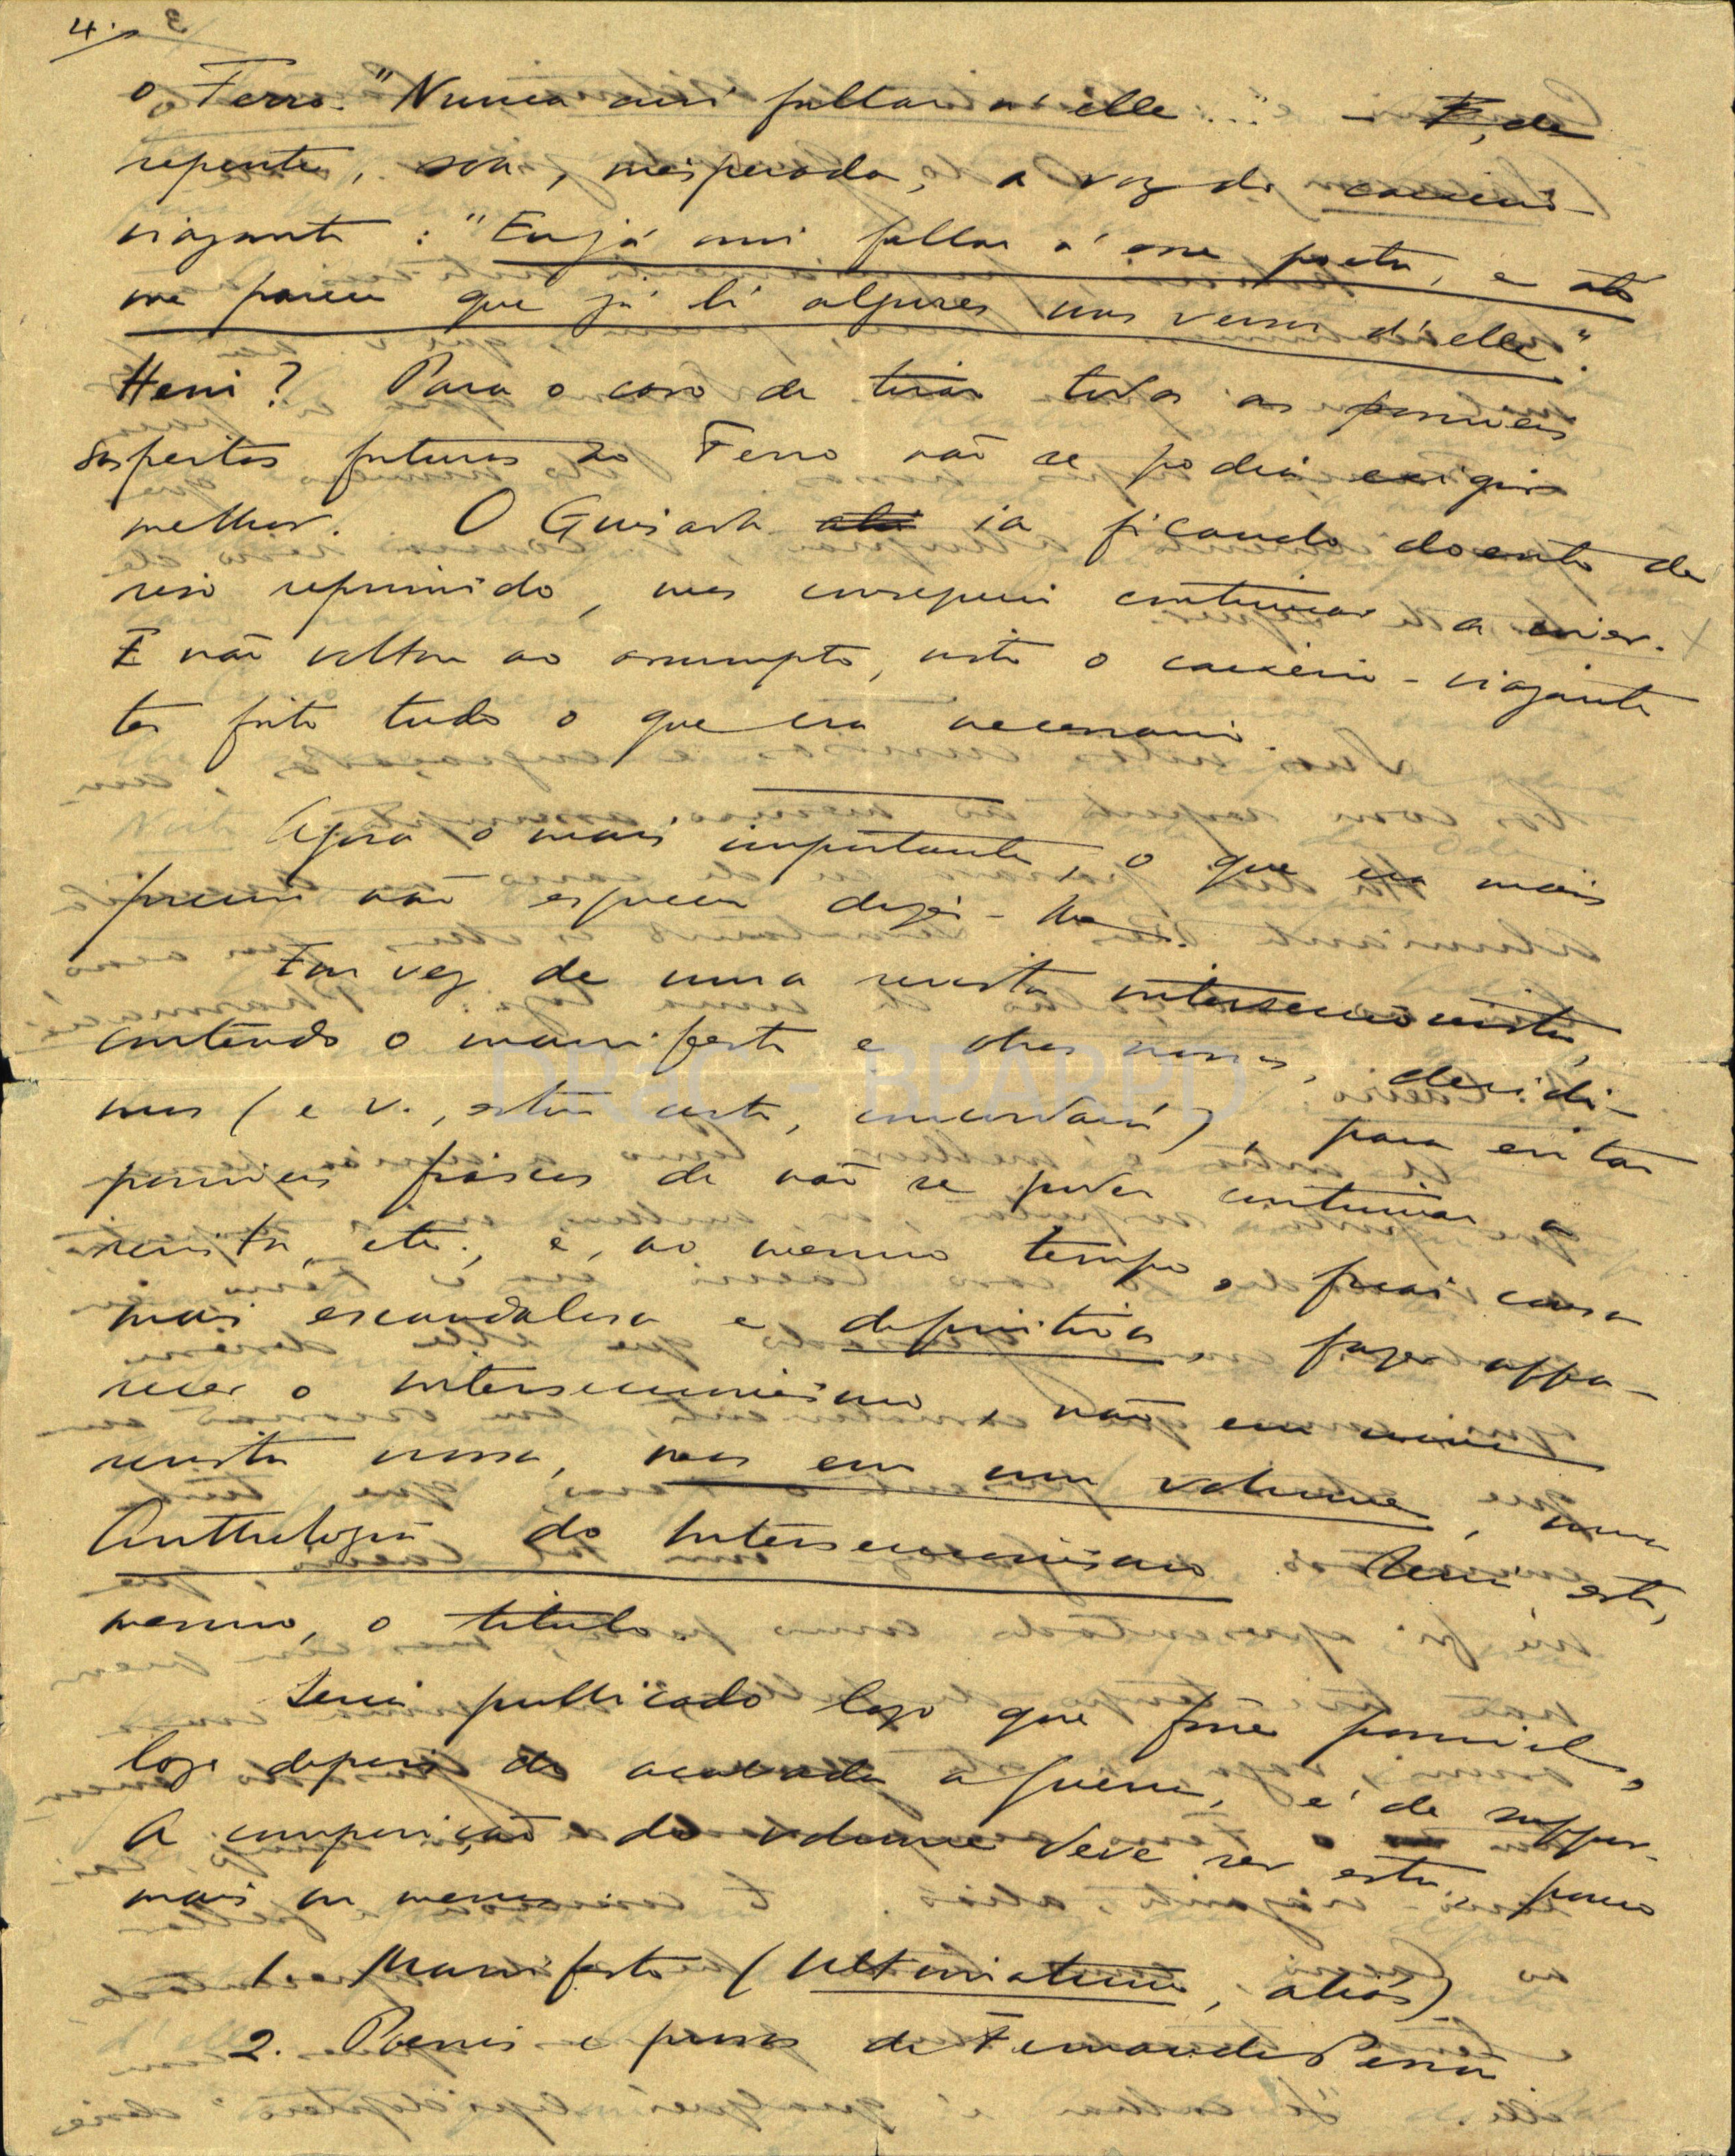 4.
o Ferro. "Nunca ouvi fallar n'elle..." — E, de
repente, soa, inesperada, a voz do caixeiro-
viajante: "Eu já ouvi fallar n'esse poeta, e até
me parece que já li algures uns versos d'elle".
Hein? Para o caso de tirar todas as possiveis
suspeitas futuras ao Ferro não se podia exigir
melhor. O Guisado ia ficando doente de
riso reprimido, mas conseguiu continuar a ouvir.
E não voltou ao assumpto, visto o caixeiro-viajante
ter feito tudo o que era necessario.
Agora o mais importante, o que mais
preciso não esquecer dizer-lhe.
Em vez de uma revista interseccionista,
contendo o manifesto e obras nossas, decidi-
mos (e v., estou certo, concordará), para evitar
possiveis fiascos de não se poder continuar a
revista, etc., e, ao mesmo tempo, ficar cousa
mais escandalosa e definitiva, fazer appa-
recer o interseccionismo, não em uma
revista nossa, mas em um volume, uma
Anthologia do Interseccionismo. Seria este,
mesmo, o titulo.
Seria publicado logo que fôsse possivel,
logo depois de acabada a guerra, é de suppor.
A composição do volume deve ser esta, pouco
mais ou menos:
1. Manifesto (Ultimatum, aliás).
2. Poemas e prosas de Fernando Pessoa
DRAC - BPARPD